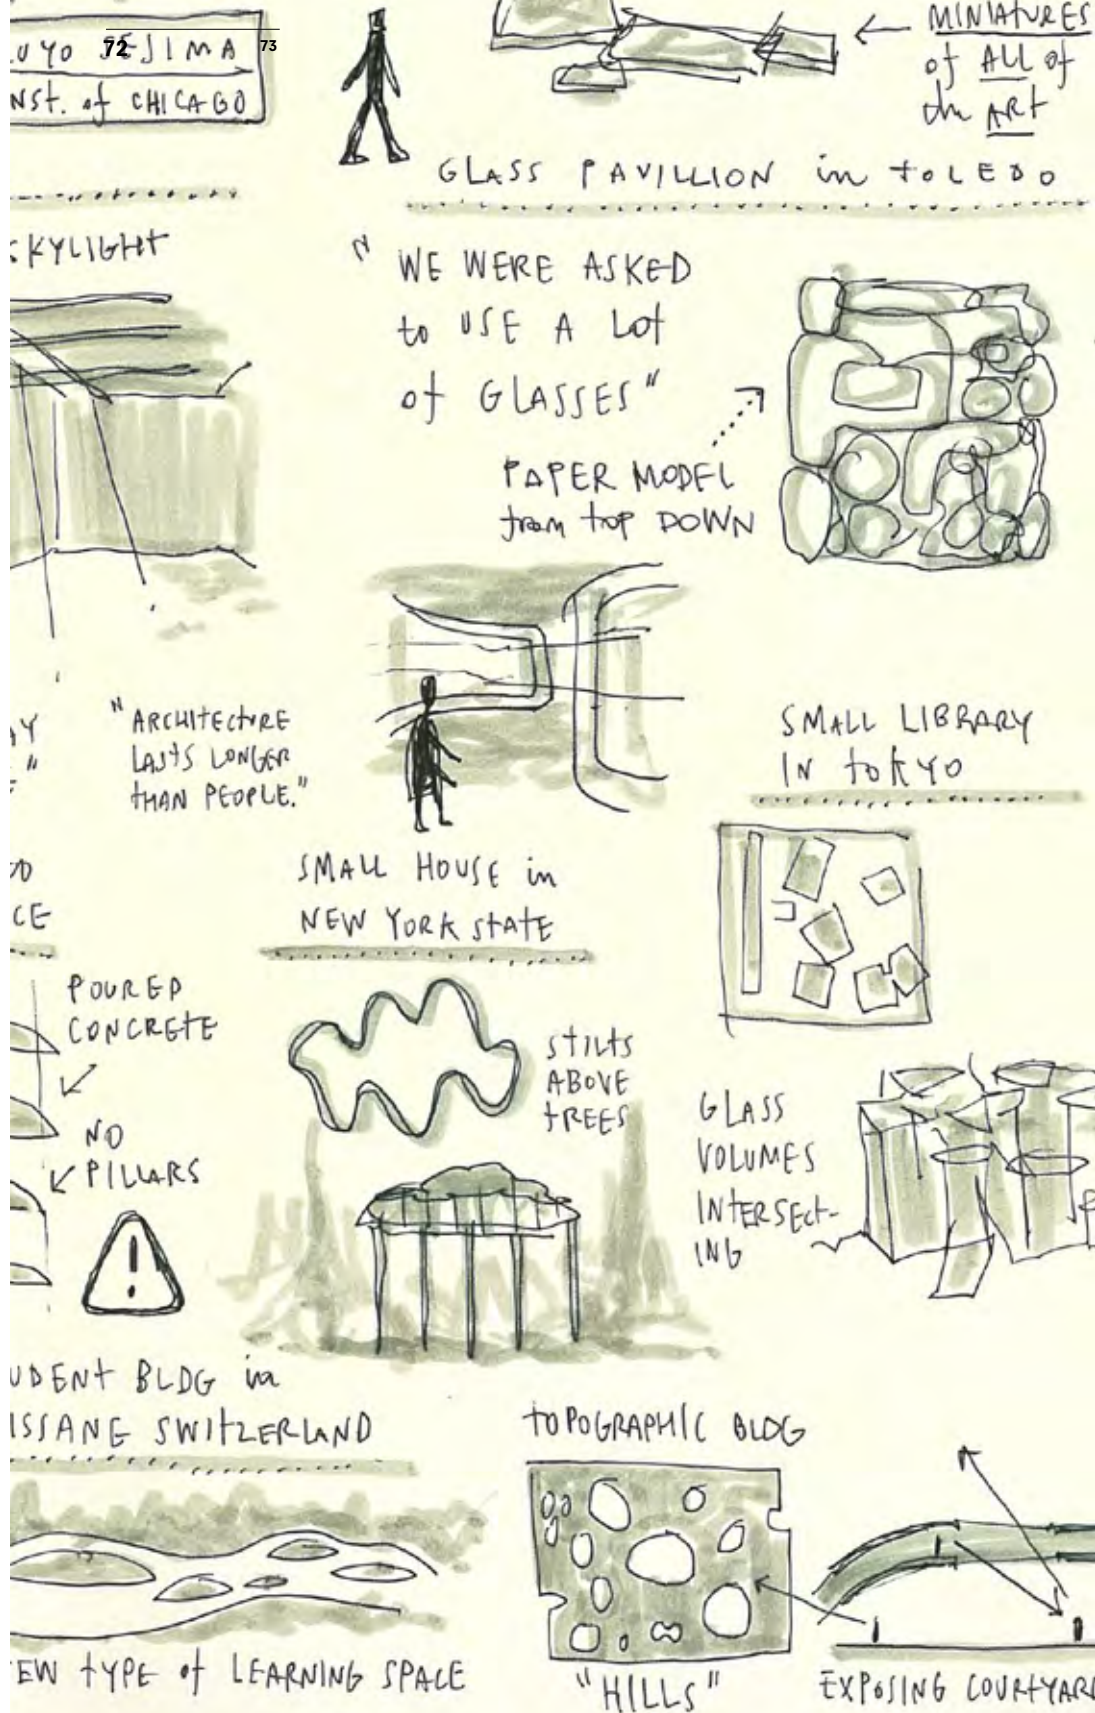 UYO SEJIMA
72
73
NST. of CHICAGO
MINIATURES
of ALL of
the ART
GLASS PAVILLION in TOLEDO
SKYLIGHT
"WE WERE ASKED
to USE A Lot
of GLASSES"
PAPER MODEL
from top DOWN
"ARCHITECTURE
LASTS LONGER
THAN PEOPLE."
SMALL LIBRARY
IN TOKYO
SMALL HOUSE in
NEW YORK STATE
CE
POURED
CONCRETE
NO
PILLARS
STILTS
ABOVE
TREES
GLASS
VOLUMES
INTERSECT-
ING
UDENT BLDG in
SSANE SWITZERLAND
TOPOGRAPHIC BLDG
EW TYPE of LEARNING SPACE
"HILLS"
EXPOSING COURTYARD